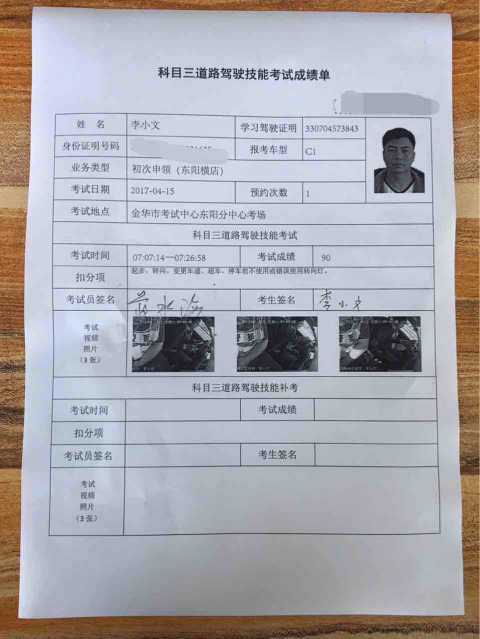 科目三道路驾驶技能考试成绩单
姓 名 李小文 学习驾驶证明 330704573843
身份证明号码 报考车型 C1
业务类型 初次申领（东阳横店）
考试日期 2017-04-15 预约次数 1
考试地点 金华市考试中心东阳分中心考场
科目三道路驾驶技能考试
考试时间 07:07:14—07:26:58 考试成绩 90
扣分项 起步、转向、变更车道、超车、停车前不使用或错误使用转向灯。
考试员签名 考生签名 李小文
考试
视频
照片
（3 张）
科目三道路驾驶技能补考
考试时间 考试成绩
扣分项
考试员签名 考生签名
考试
视频
照片
（3 张）